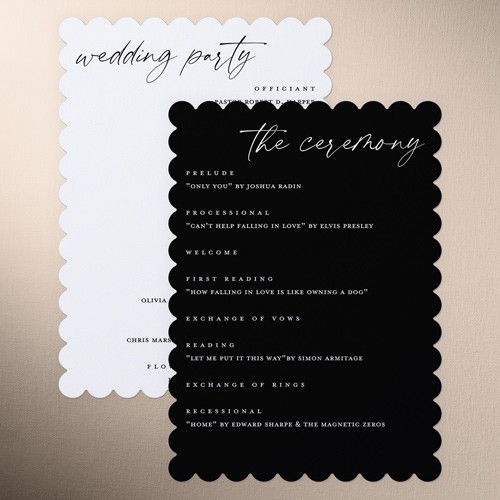 wedding party
OFFICIANT
PASTOR ROBERT D. HARPER
OLIVIA
CHRIS MARS
FLOW
the ceremony
PRELUDE
"ONLY YOU" BY JOSHUA RADIN
PROCESSIONAL
"CAN'T HELP FALLING IN LOVE" BY ELVIS PRESLEY
WELCOME
FIRST READING
"HOW FALLING IN LOVE IS LIKE OWNING A DOG"
EXCHANGE OF VOWS
READING
"LET ME PUT IT THIS WAY"BY SIMON ARMITAGE
EXCHANGE OF RINGS
RECESSIONAL
"HOME" BY EDWARD SHARPE & THE MAGNETIC ZEROS